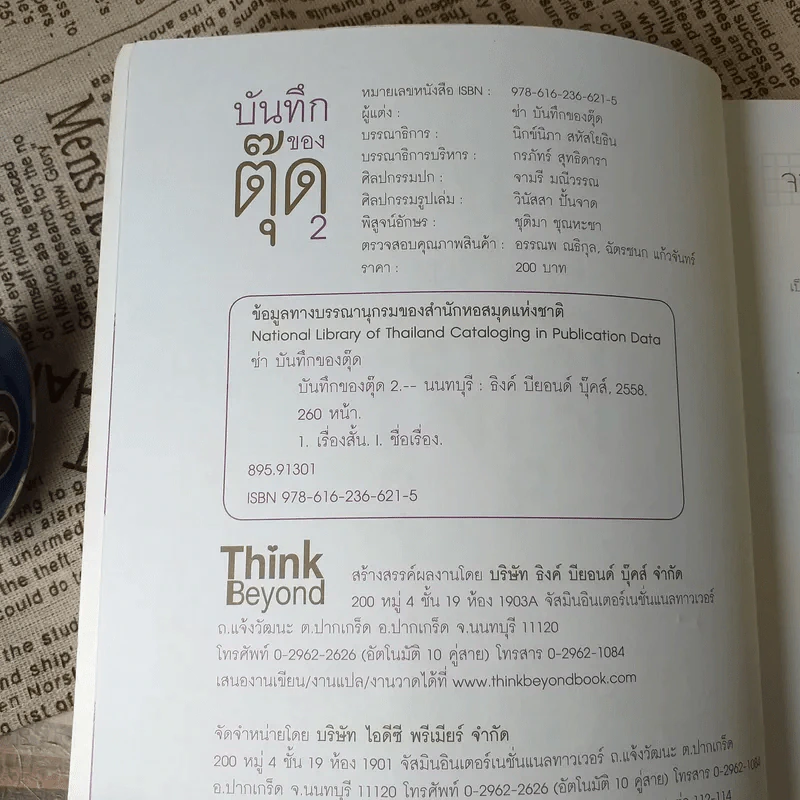 บันทึก
ของ
ตุ๊ด
2
หมายเลขหนังสือ ISBN : 978-616-236-621-5
ผู้แต่ง : ช่า บันทึกของตุ๊ด
บรรณาธิการ : นิกษ์นิภา สหัสโยธิน
บรรณาธิการบริหาร : กรภัทร์ สุทธิดารา
ศิลปกรรมปก : จามรี มณีวรรณ
ศิลปกรรมรูปเล่ม : วินัสสา ปั้นจาด
พิสูจน์อักษร : ชุติมา ชุณหะชา
ตรวจสอบคุณภาพสินค้า : อรรณพ ณธิกุล, ฉัตรชนก แก้วจันทร์
ราคา : 200 บาท
ข้อมูลทางบรรณานุกรมของสำนักหอสมุดแห่งชาติ
National Library of Thailand Cataloging in Publication Data
ช่า บันทึกของตุ๊ด
บันทึกของตุ๊ด 2.-- นนทบุรี : ธิงค์ บียอนด์ บุ๊คส์, 2558.
260 หน้า.
1. เรื่องสั้น. I. ชื่อเรื่อง.
895.91301
ISBN 978-616-236-621-5
Think
Beyond
สร้างสรรค์ผลงานโดย บริษัท ธิงค์ บียอนด์ บุ๊คส์ จำกัด
200 หมู่ 4 ชั้น 19 ห้อง 1903A จัสมินอินเตอร์เนชั่นแนลทาวเวอร์
ถ.แจ้งวัฒนะ ต.ปากเกร็ด อ.ปากเกร็ด จ.นนทบุรี 11120
โทรศัพท์ 0-2962-2626 (อัตโนมัติ 10 คู่สาย) โทรสาร 0-2962-1084
เสนองานเขียน/งานแปล/งานวาดได้ที่ www.thinkbeyondbook.com
จัดจำหน่ายโดย บริษัท ไอดีซี พรีเมียร์ จำกัด
200 หมู่ 4 ชั้น 19 ห้อง 1901 จัสมินอินเตอร์เนชั่นแนลทาวเวอร์ ถ.แจ้งวัฒนะ ต.ปากเกร็ด
อ.ปากเกร็ด จ.นนทบุรี 11120 โทรศัพท์ 0-2962-2626 (อัตโนมัติ 10 คู่สาย) โทรสาร 0-2962-1084
112-114